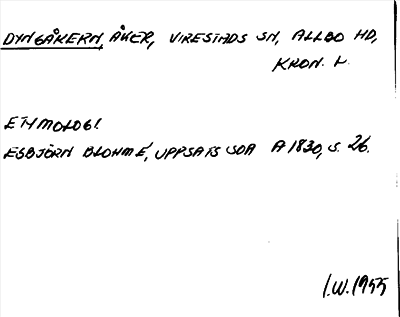 DYNGÅKERN, ÅKER, VIRESTADS SN, ALLBO HD,
KRON. L.
ETYMOLOGI
ESBJÖRN BLOHMÉ, UPPSATS SOA A 1830, S. 26.
I.W. 1955